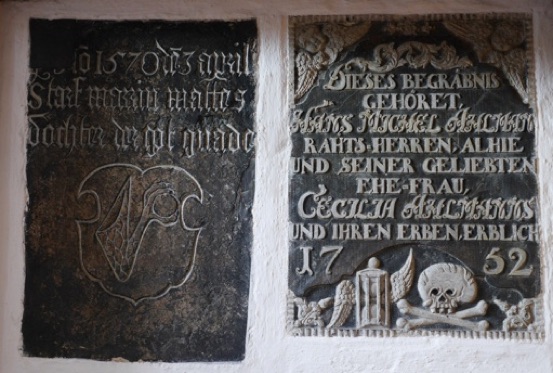 1570 dē 3 april
Starf marin mattes
dochter der got gnade
DIESES BEGRÄBNIS
GEHÖRET,
HANS MICHEL AHLMAN
RAHTS-HERREN, ALHIE
UND SEINER GELIEBTEN
EHE-FRAU,
CECILIA AHLMANNS
UND IHREN ERBEN, ERBLICH
17 52